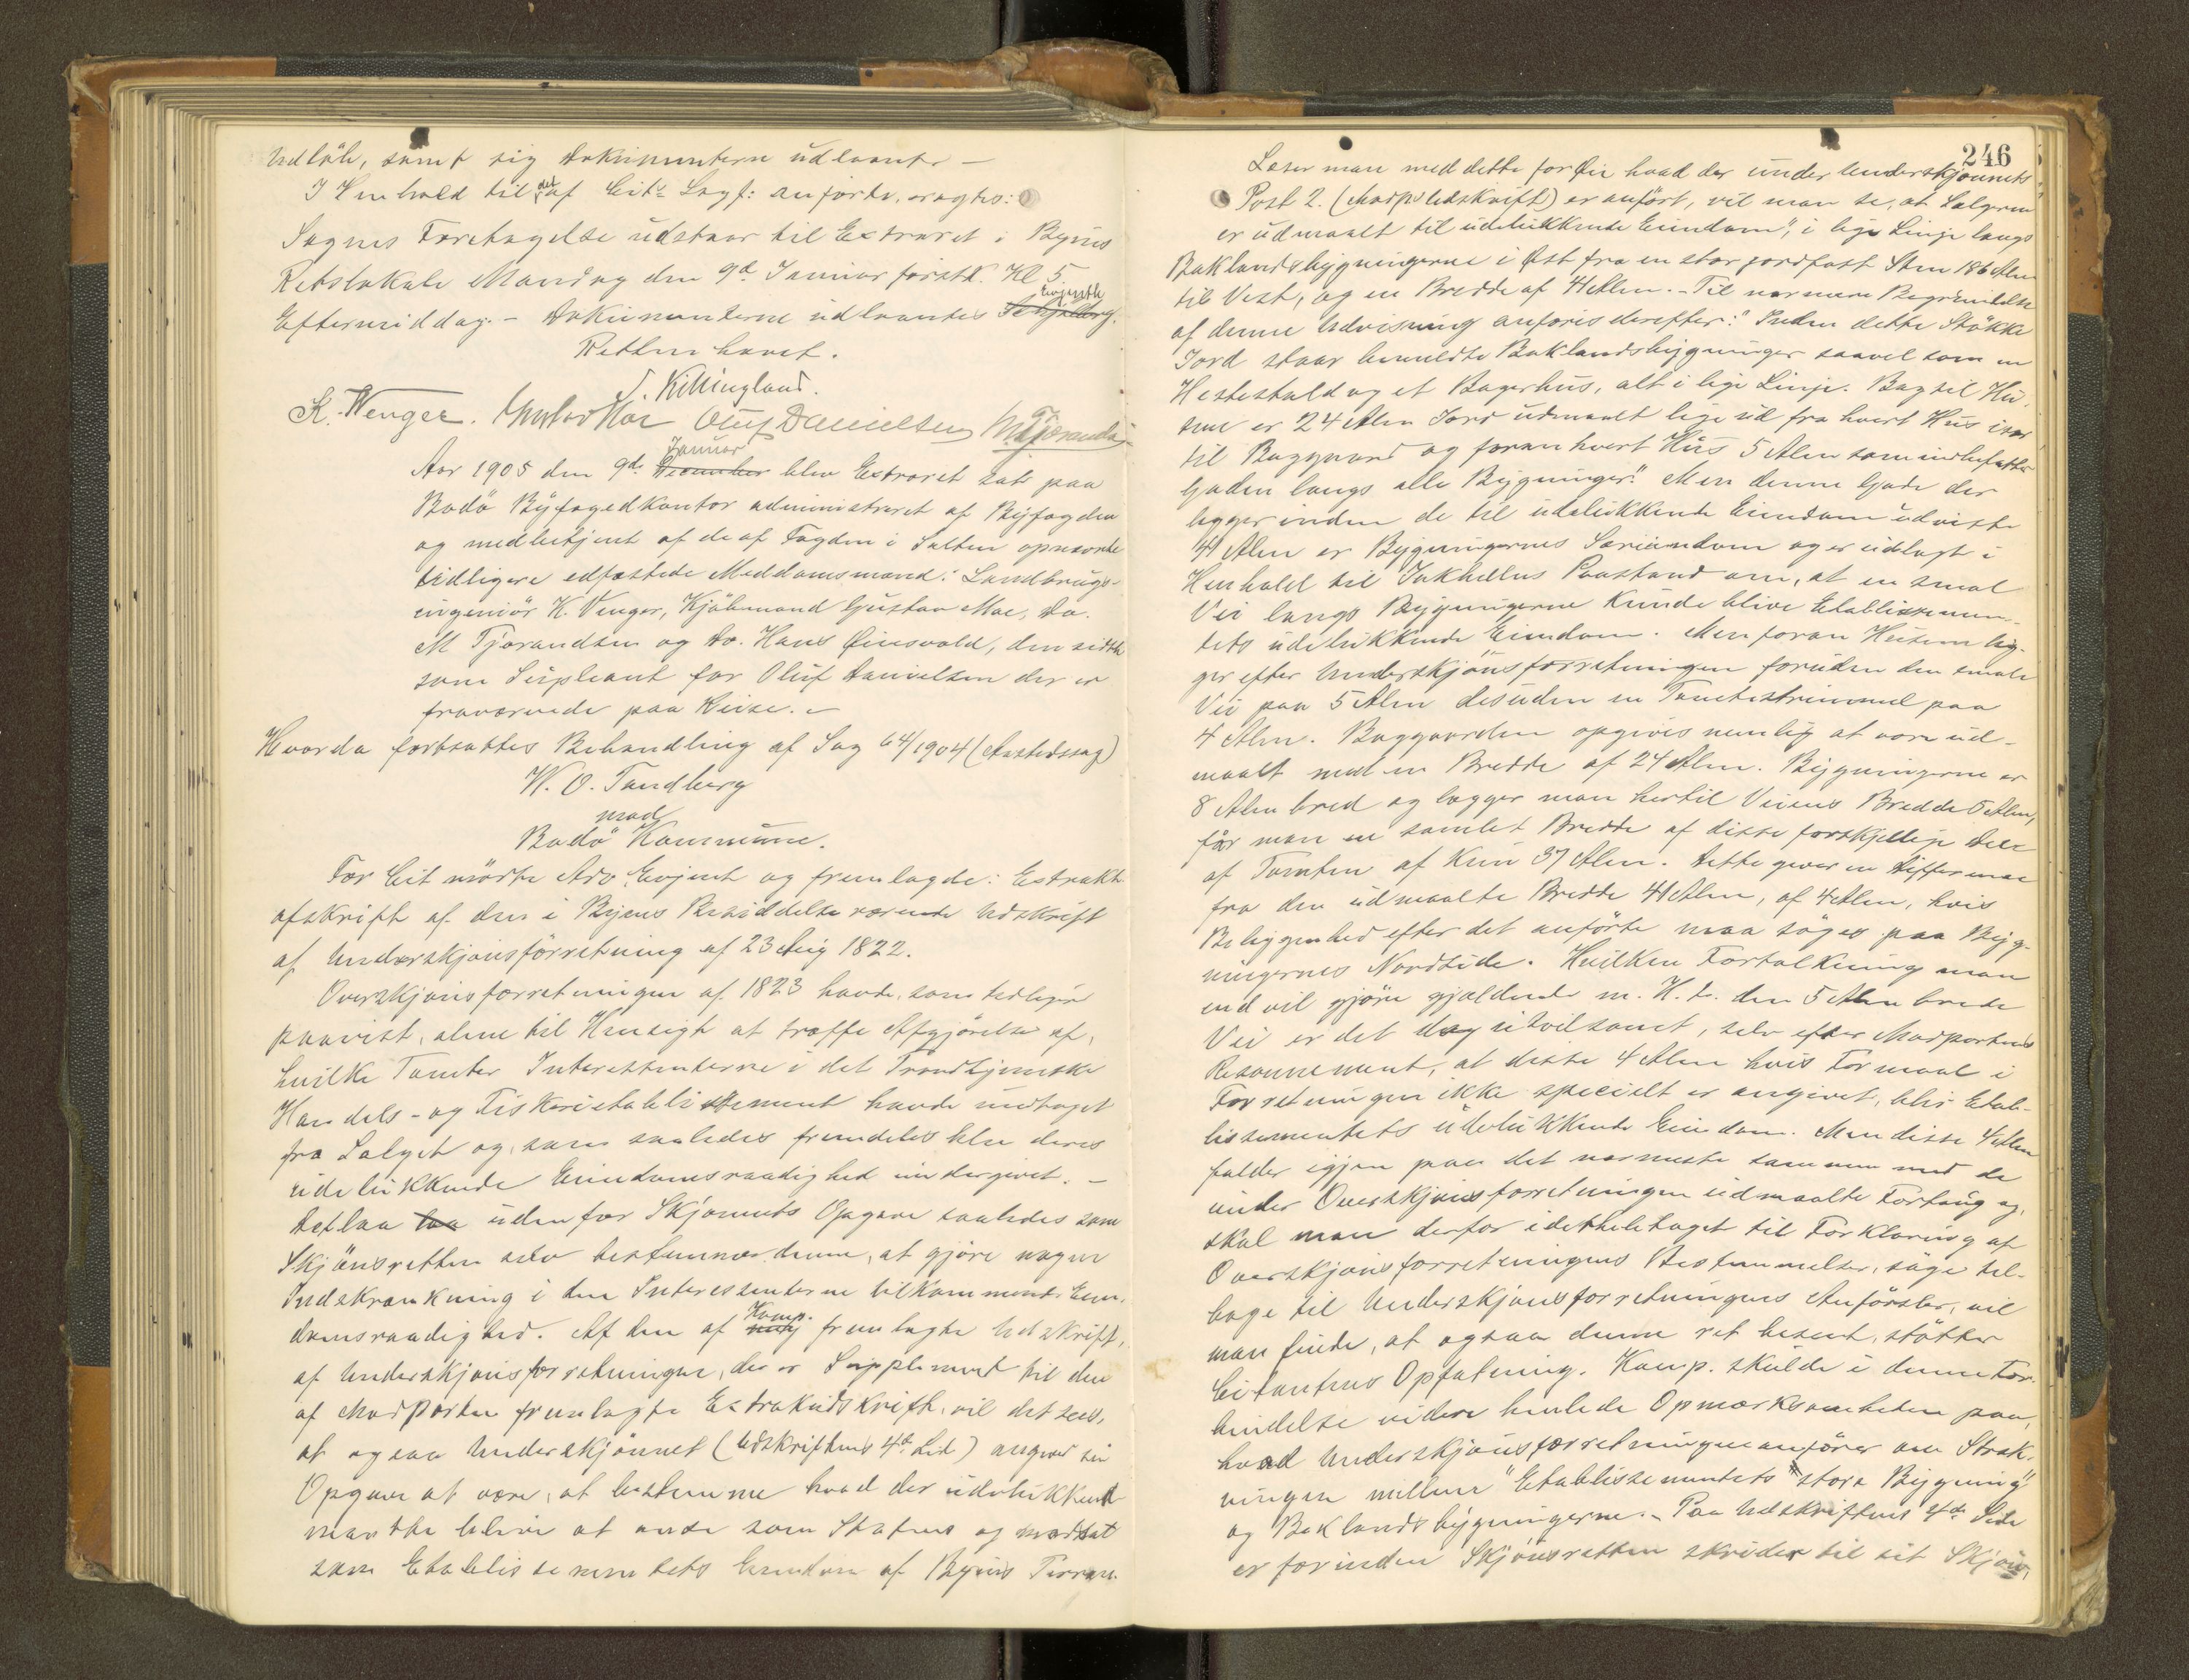 Udløb, samt sig Dokumenterne udlaante —
I Henhold til det af Cit⸰ Sagf: anførte, eragtes:
Sagens Foretagelse udstaar til Extraret i Byens
Retslokale Mandag den 9de Januar førstk. Kl 5
Eftermiddag. – Dokumenterne udlaantes Evjenth
Retten hævet.
J. Killingland.
K. Wenger. Gustav Moe Oluf Danielsen M Tjørandsen
Januar
Aar 1905 den 9de December blev Extraret sat paa
Bodö Byfogedkontor administreret af Byfogden
og medbetjent af de af Fogden i Salten opnævnte
tidligere edfæstede Meddomsmænd: Landbrugs-
ingeniör K. Wenger, Kjöbmand Gustav Moe, Do.
M Tjørandsen og Do. Hans Öinsvold, den sidste
som Supleant for Oluf Danielsen der er
fraværende paa Reise. –
Hvorda fortsattes Behandling af Sag 64/1904 (Aastedssag)
W. O. Tandberg
mod
Bodö Kommune.
For Cit mödte Adv Evjent og fremlagde: Extrakt
afskrift af den i Byens Besiddelse værende Udskrift
af Underskjönsförretning af 23 Aug 1822.
Overskjönsforretningen af 1823 havde, som tidligere
paavist, alene til Hensigt at træffe Afgjörelse af,
hvilke Tomter Interessenterne i det Trondhjemske
Handels- og Fiskerietablissement havde modtaget
fra Salget og, som saaledes fremdeles blev deres
udelukkende Eiendomsraadighed undergivet. –
Det laa udenfor Skjønnets Opgave saaledes som
Skjönsretten selv bestemmer denne, at gjöre nogen
Indskrænkning i den Interessenterne tilkommende Eien-
domsraadighed. Af den af Komp. fremlagte Udskrift,
af Underskjönsforretningen, der er Supplement til den
af Modparten fremlagte Extraktudskrift, vil det sees,
at ogsaa Underskjönnet (Udskriftens 4de Side) angiver sin
Opgave at være, at bestemme hvad der udelukkende
maatte blive at anse som Statens og modsat
som Etablissementets Eiendom af Byens Terræn.
246
Læser man med dette for Öie hvad der under Underskjönnets
Post 2. (Modp⸰ Udskrift) er anfört, vil man se, at Sælgeren
er udmaalt til udelukkende Eiendom", i lige Linje langs
Baklandsbygningerne i Öst fra en stor jordfast Sten 186 Alen
til Vest, og en Bredde af 41 Alen. – Til nærmere Begrændelse
af denne Udvisning anføres derefter: "Inden dette Stökke
Jord staar bemeldte Baklandsbygninger saavel som en
Hestestald og et Bagerhus, alt i lige Linje. Bagtil Hu-
sene er 24 Alen Jord udmaalt lige ud fra hvert Hus især
til Baggaard og foran hvert Hus 5 Alen som indbefatter
Gaden langs alle Bygninger." Men denne Gade der
ligger inden de til udelukkende Eiendom udviste
41 Alen er Bygningernes Særeiendom og er udlagt i
Henhold til Jakhellns Paastand om, at en smal
Vei langs Bygningerne kunde blive Etablissemen-
tets udelukkende Eiendom. Men foran Husene lig-
ger efter Underskjönsforretningen foruden den smale
Vei paa 5 Alen desuden en Tomtestrimmel paa
4 Alen. Baggaarden opgives nemlig at være ud-
maalt med en Bredde af 24 Alen. Bygningerne er
8 Alen bred og lægger man hertil Veiens Bredde 5 Alen,
får man en samlet Bredde af disse forskjellige Dele
af Tomten af kun 37 Alen. Dette giver en Difference
fra den udmaalte Bredde 41 Alen, af 4 Alen, hvis
Beliggenhed efter det anförte maa söges paa Byg-
ningernes Nordside. Hvilken Fortolkning man
end vil gjöre gjældende m. H. t. den 5 Alen brede
Vei er det dog utvilsomt, selv efter Modpartens
Resonnement, at disse 4 Alen hvis Formaal i
Forretningen ikke specielt er angivet, blir Etab-
lissementets udelukkende Eiendom. Men disse 4 Alen
falder igjen paa det nærmeste sammen med de
under Overskjönsforretningen udmaalte Fortaug og,
skal man derfor i det hele taget til Forklaring af
Overskjönsforretningens Bestemmelser, söge til-
bage til Underskjönsforretningens Anförsler, vil
man finde, at ogsaa denne ret beseet, støtter
Citantens Opfatning. Komp. skulde i denne For-
bindelse videre henlede Opmærksomheden paa,
hvad Underskjönsforretningen anfører om Stræk-
ningen mellem "Etablissementets store Bygning"
og Baklandsbygningerne. – Paa Udskriftens 4de Side
er forinden Skjönsretten skrider til sit Skjön,